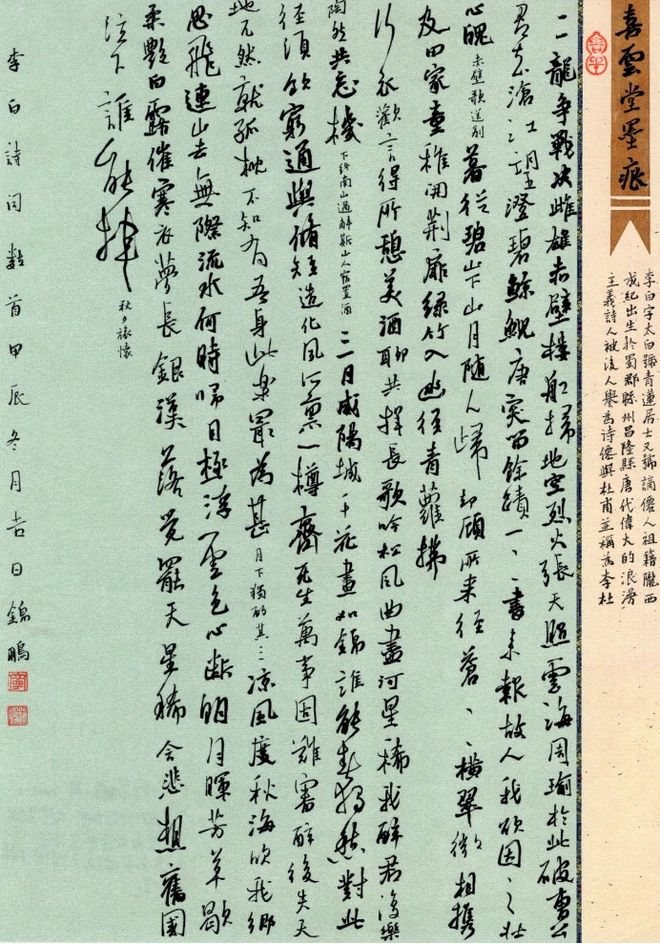 喜雲堂墨痕
李白字太白號青蓮居士又號謫僊人祖籍隴西
成紀出生於蜀郡緜州昌隆縣唐代偉大的浪漫
主義詩人被後人譽為詩僊與杜甫並稱為李杜
二龍爭戰決雌雄赤壁樓船掃地空烈火張天照雲海周瑜於此破曹公
君去滄江望澄碧鯨鯢唐突留餘蹟一一書來報故人我欲因之壯
心魄 赤壁歌送別 暮從碧山下山月隨人歸卻顧所來徑蒼蒼橫翠微相攜
及田家童稚開荊扉綠竹入幽徑青蘿拂
行衣歡言得所憩美酒聊共揮長歌吟松風曲盡河星稀我醉君復樂
陶然共忘機 下終南山過斛斯山人宿置酒 三月咸陽城千花晝如錦誰能春獨愁對此
徑須飲窮通與脩短造化夙所稟一樽齊死生萬事固難審醉後失天
地兀然就孤枕不知有吾身此樂最為甚 月下獨酌其三 涼風度秋海吹我鄉
思飛連山去無際流水何時歸目極浮雲色心斷明月暉芳草歇
柔艷白露催寒衣夢長銀漢落覺罷天星稀含悲想舊國
泣下誰能揮 秋夕旅懷
李白詩詞數首甲辰冬月吉日錦鵬